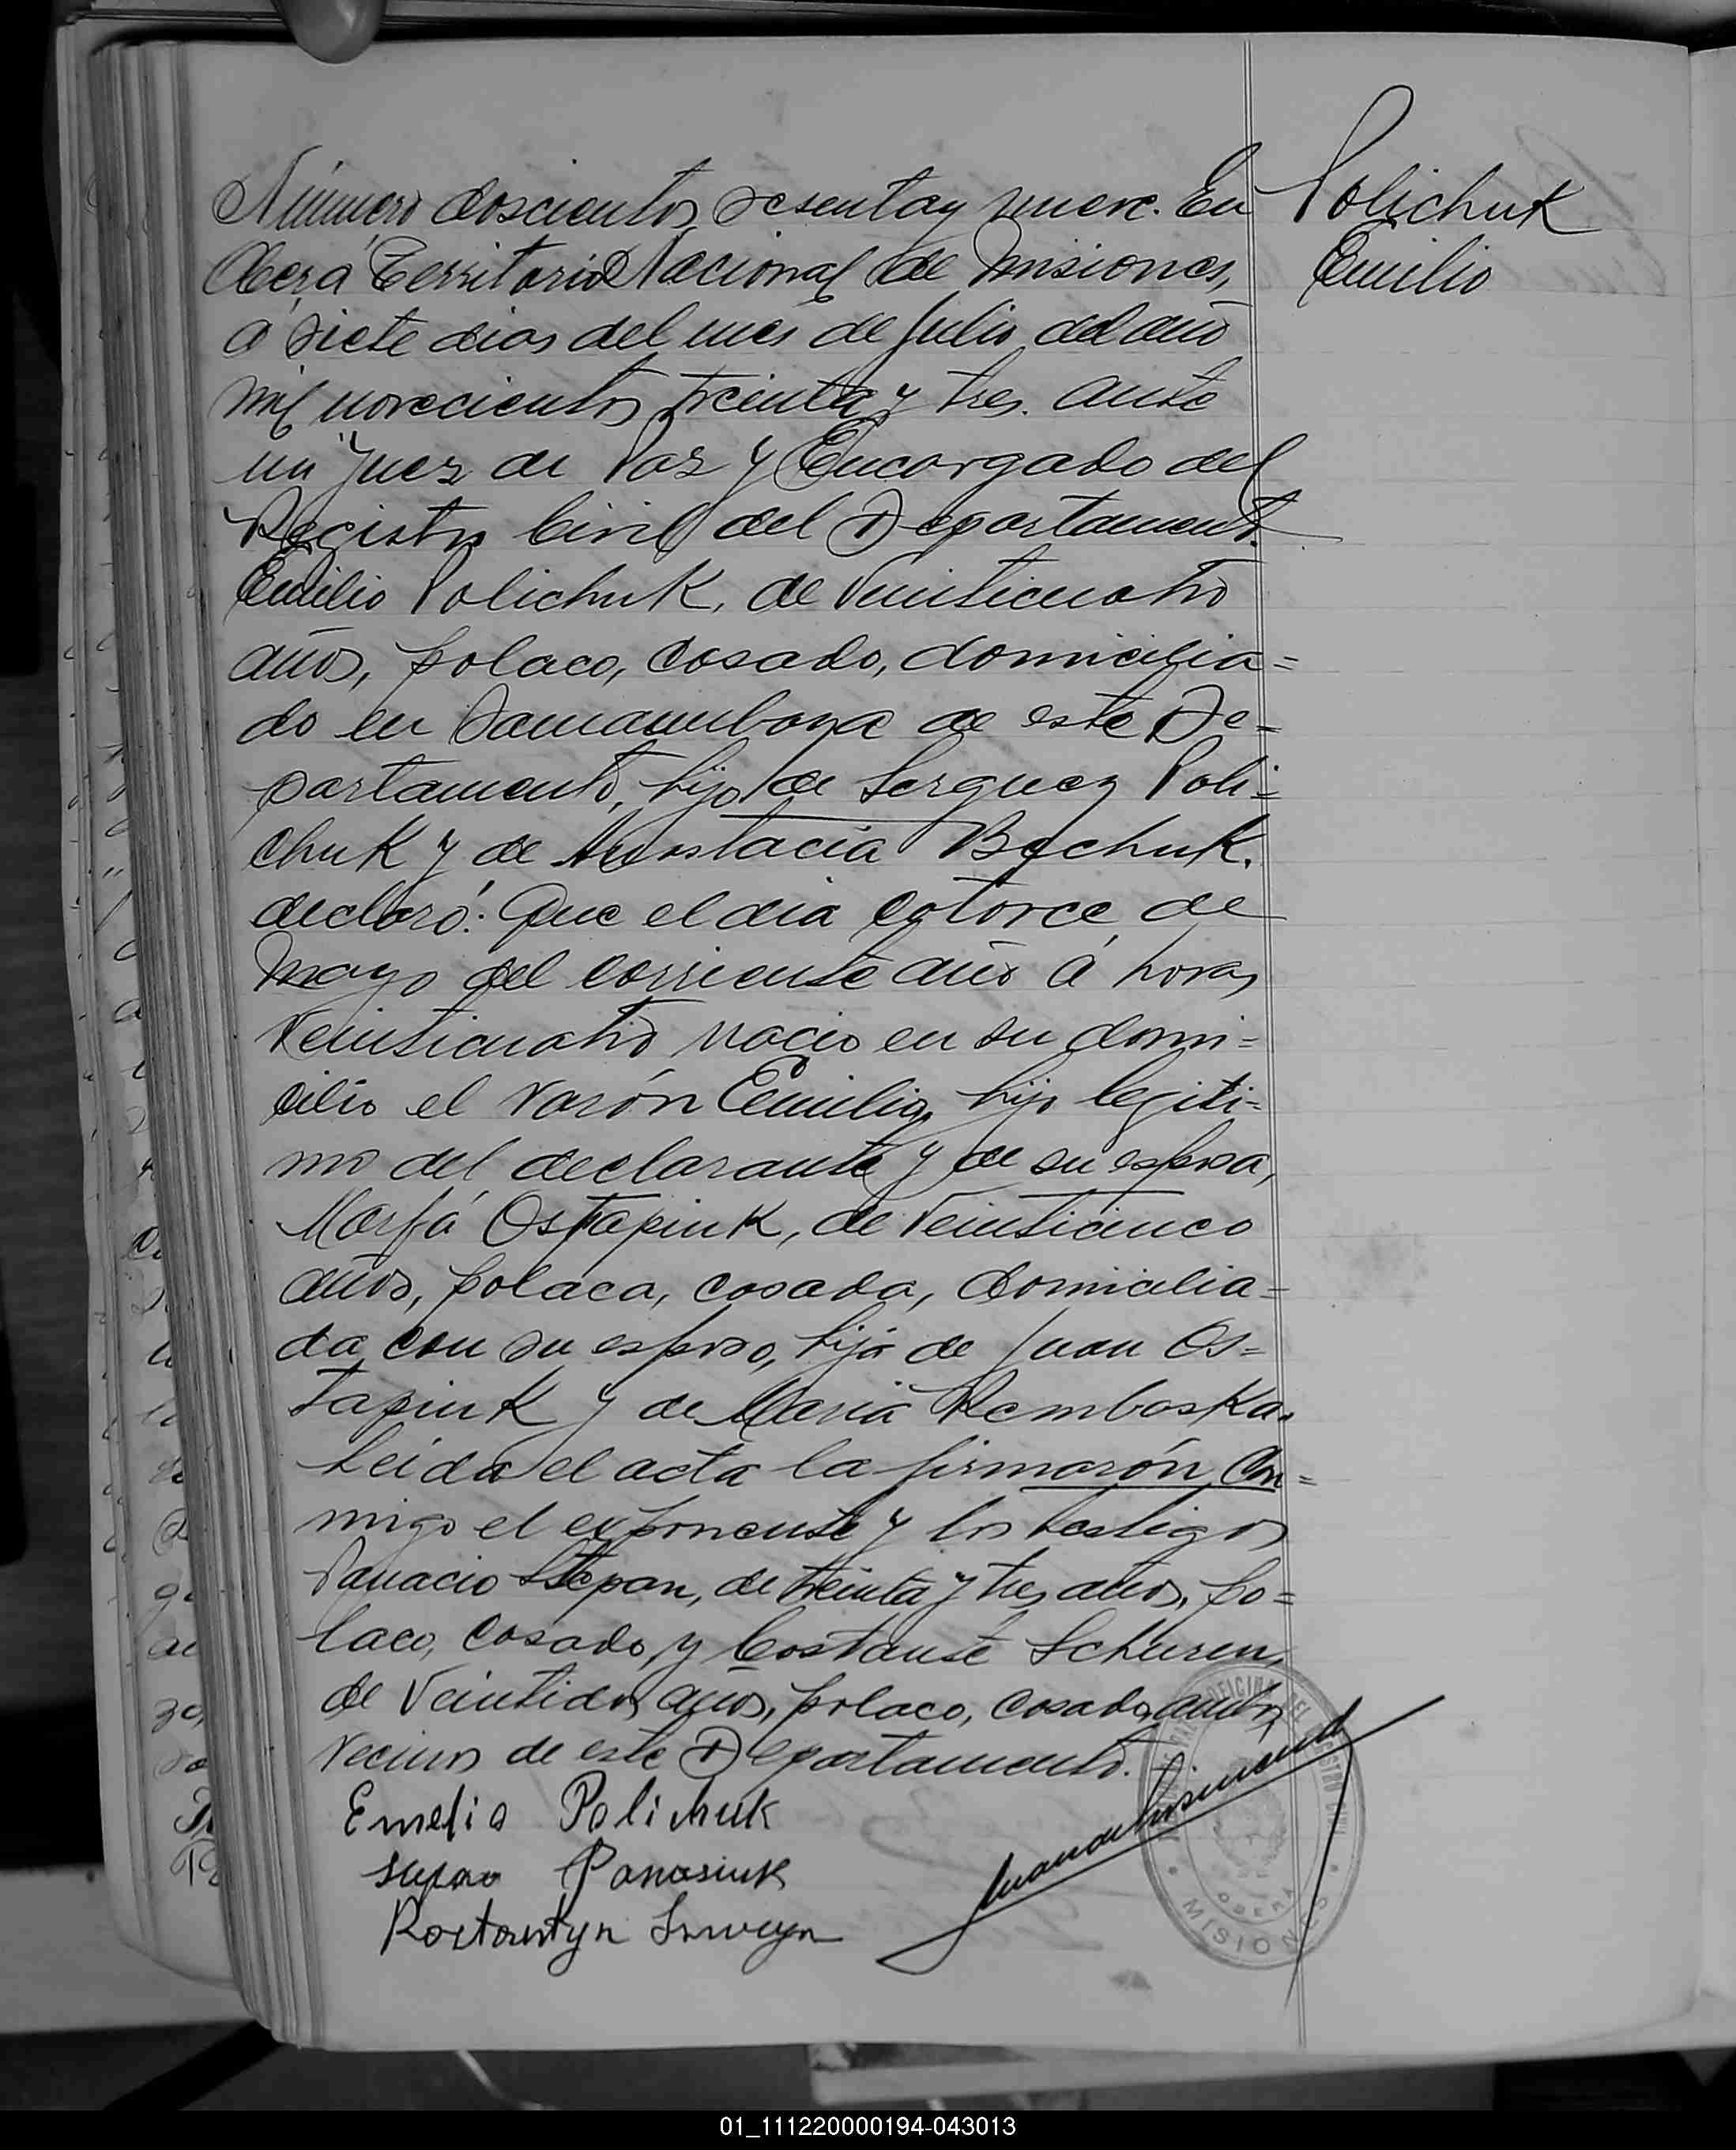 Número doscientos sesenta y nueve. En
Oberá Territorio Nacional de Misiones,
á siete dias del mes de Julio del año
mil novecientos treinta y tres. ante
un Juez de Paz y Encargado del
Registro Civil del Departamento.
Emilio Polichuk, de veinticuatro
años, polaco, casado, domicilia=
do en Samambaya de este De=
partamento, hijo de Serguez Poli=
chuk y de Anastacia Bochuk.
declaró: Que el dia catorce de
Mayo del corriente año á horas
veinticuatro nació en su domi=
cilio el varón Emilio, hijo legiti=
mo del declarante y de su esposa,
Marfa Ostapiuk, de veinticinco
años, polaca, casada, domicilia=
da con su esposo, hija de Juan Os=
tapiuk y de Maria Remboska.
Leida el acta la firmarón con=
migo el exponente y los testigos
Panacio Stepan, de treinta y tres años, po=
laco, casado, y Costante Schuren,
de veintidos años, polaco, casado, ambos
vecinos de este Departamento.
Emelio Polichuk
Panasiuk
Kostantyn
Polichuk
Emilio
OFICINA DEL REGISTRO CIVIL
OBERA
MISIONES
01_111220000194-043013